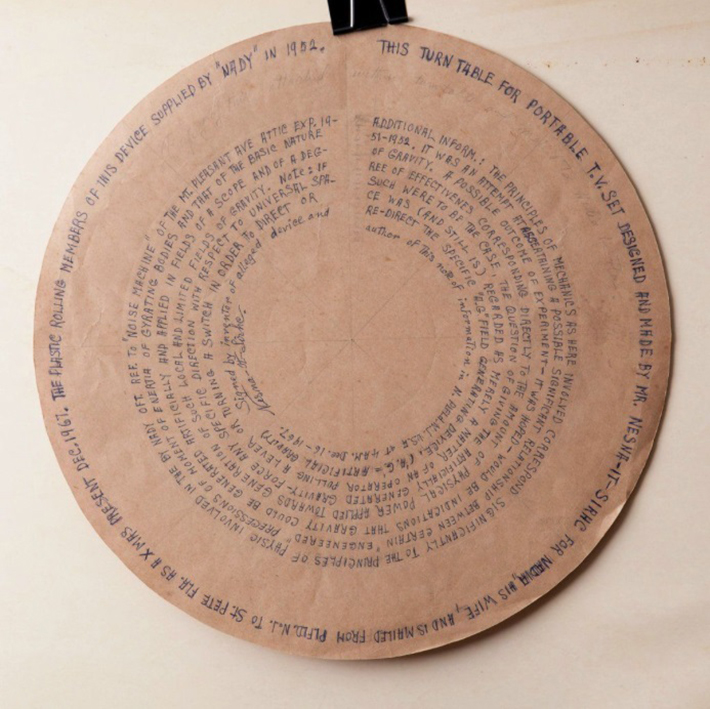 THIS TURN TABLE FOR PORTABLE T.V. SET DESIGNED AND MADE BY MR. NESNA-IT-STAHC FOR NADIA, HIS WIFE, AND IS MAILED FROM PLFLD. N.J. TO ST. PETE FLA. AS A XMAS PRESENT DEC-1967. THE PLASTIC ROLLING MEMBERS OF THIS DEVICE SUPPLIED BY "NADY" IN 1952.
ADDITIONAL INFORM.: THE PRINCIPLES OF MECHANICS AS HERE INVOLVED CORRESPOND SIGNIFICANTLY TO THE PRINCIPLES OF PHYSIC INVOLVED IN THE BY HARDY OFT REF. TO "NOISE MACHINE" OF THE MT. PLEASANT AVE ATTIC EXP. 19-
51-1952. IT WAS AN ATTEMPT AT ASCERTAINING A POSSIBLE SIGNIFICANT RELATIONSHIP BETWEEN CERTAIN "ENGENEERED" PRECESSIONS OF MOMENT OF ENERTIA OF GYRATING BODIES AND THAT OF THE BASIC NATURE
OF GRAVITY. A POSSIBLE OUTCOME OF EXPERIMENT - IT WAS HOPED - WOULD BE INDICATIONS THAT GRAVITY COULD BE GENERATED ARTIFICIALLY AND APPLIED IN FIELDS OF A SCOPE AND OF A DEG-
REE OF EFFECTIVENES CORRESPONDING DIRECTLY TO THE AMOUNT OF PHYSICAL POWER APPLIED TOWARDS GENERATION OF SUCH ARTIFICIAL LOCAL AND LIMITED FIELDS OF GRAVITY. NOTE: IF
SUCH WERE TO BE THE CASE THE QUESTION OF GIVING THE ARTIFICIALLY GENERATED GRAVITY-FORCE ANY SPECIFIC DIRECTION WITH RESPECT TO UNIVERSAL SPA-
CE WAS (AND STILL IS) REGARDED AS MERELY A MATTER OF AN OPERATOR PULLING A LEVER OR TURNING A SWITCH IN ORDER TO DIRECT OR
RE-DIRECT THE SPECIFIC "A.G." FIELD GENERATING DEVICE. (A.G. = ARTIFICIAL GRAVITY) Signed by inventor of alleged device and
author of this note of information in N. Plfld. N.J. USA at 4 A.M. Dec. 16-1967.